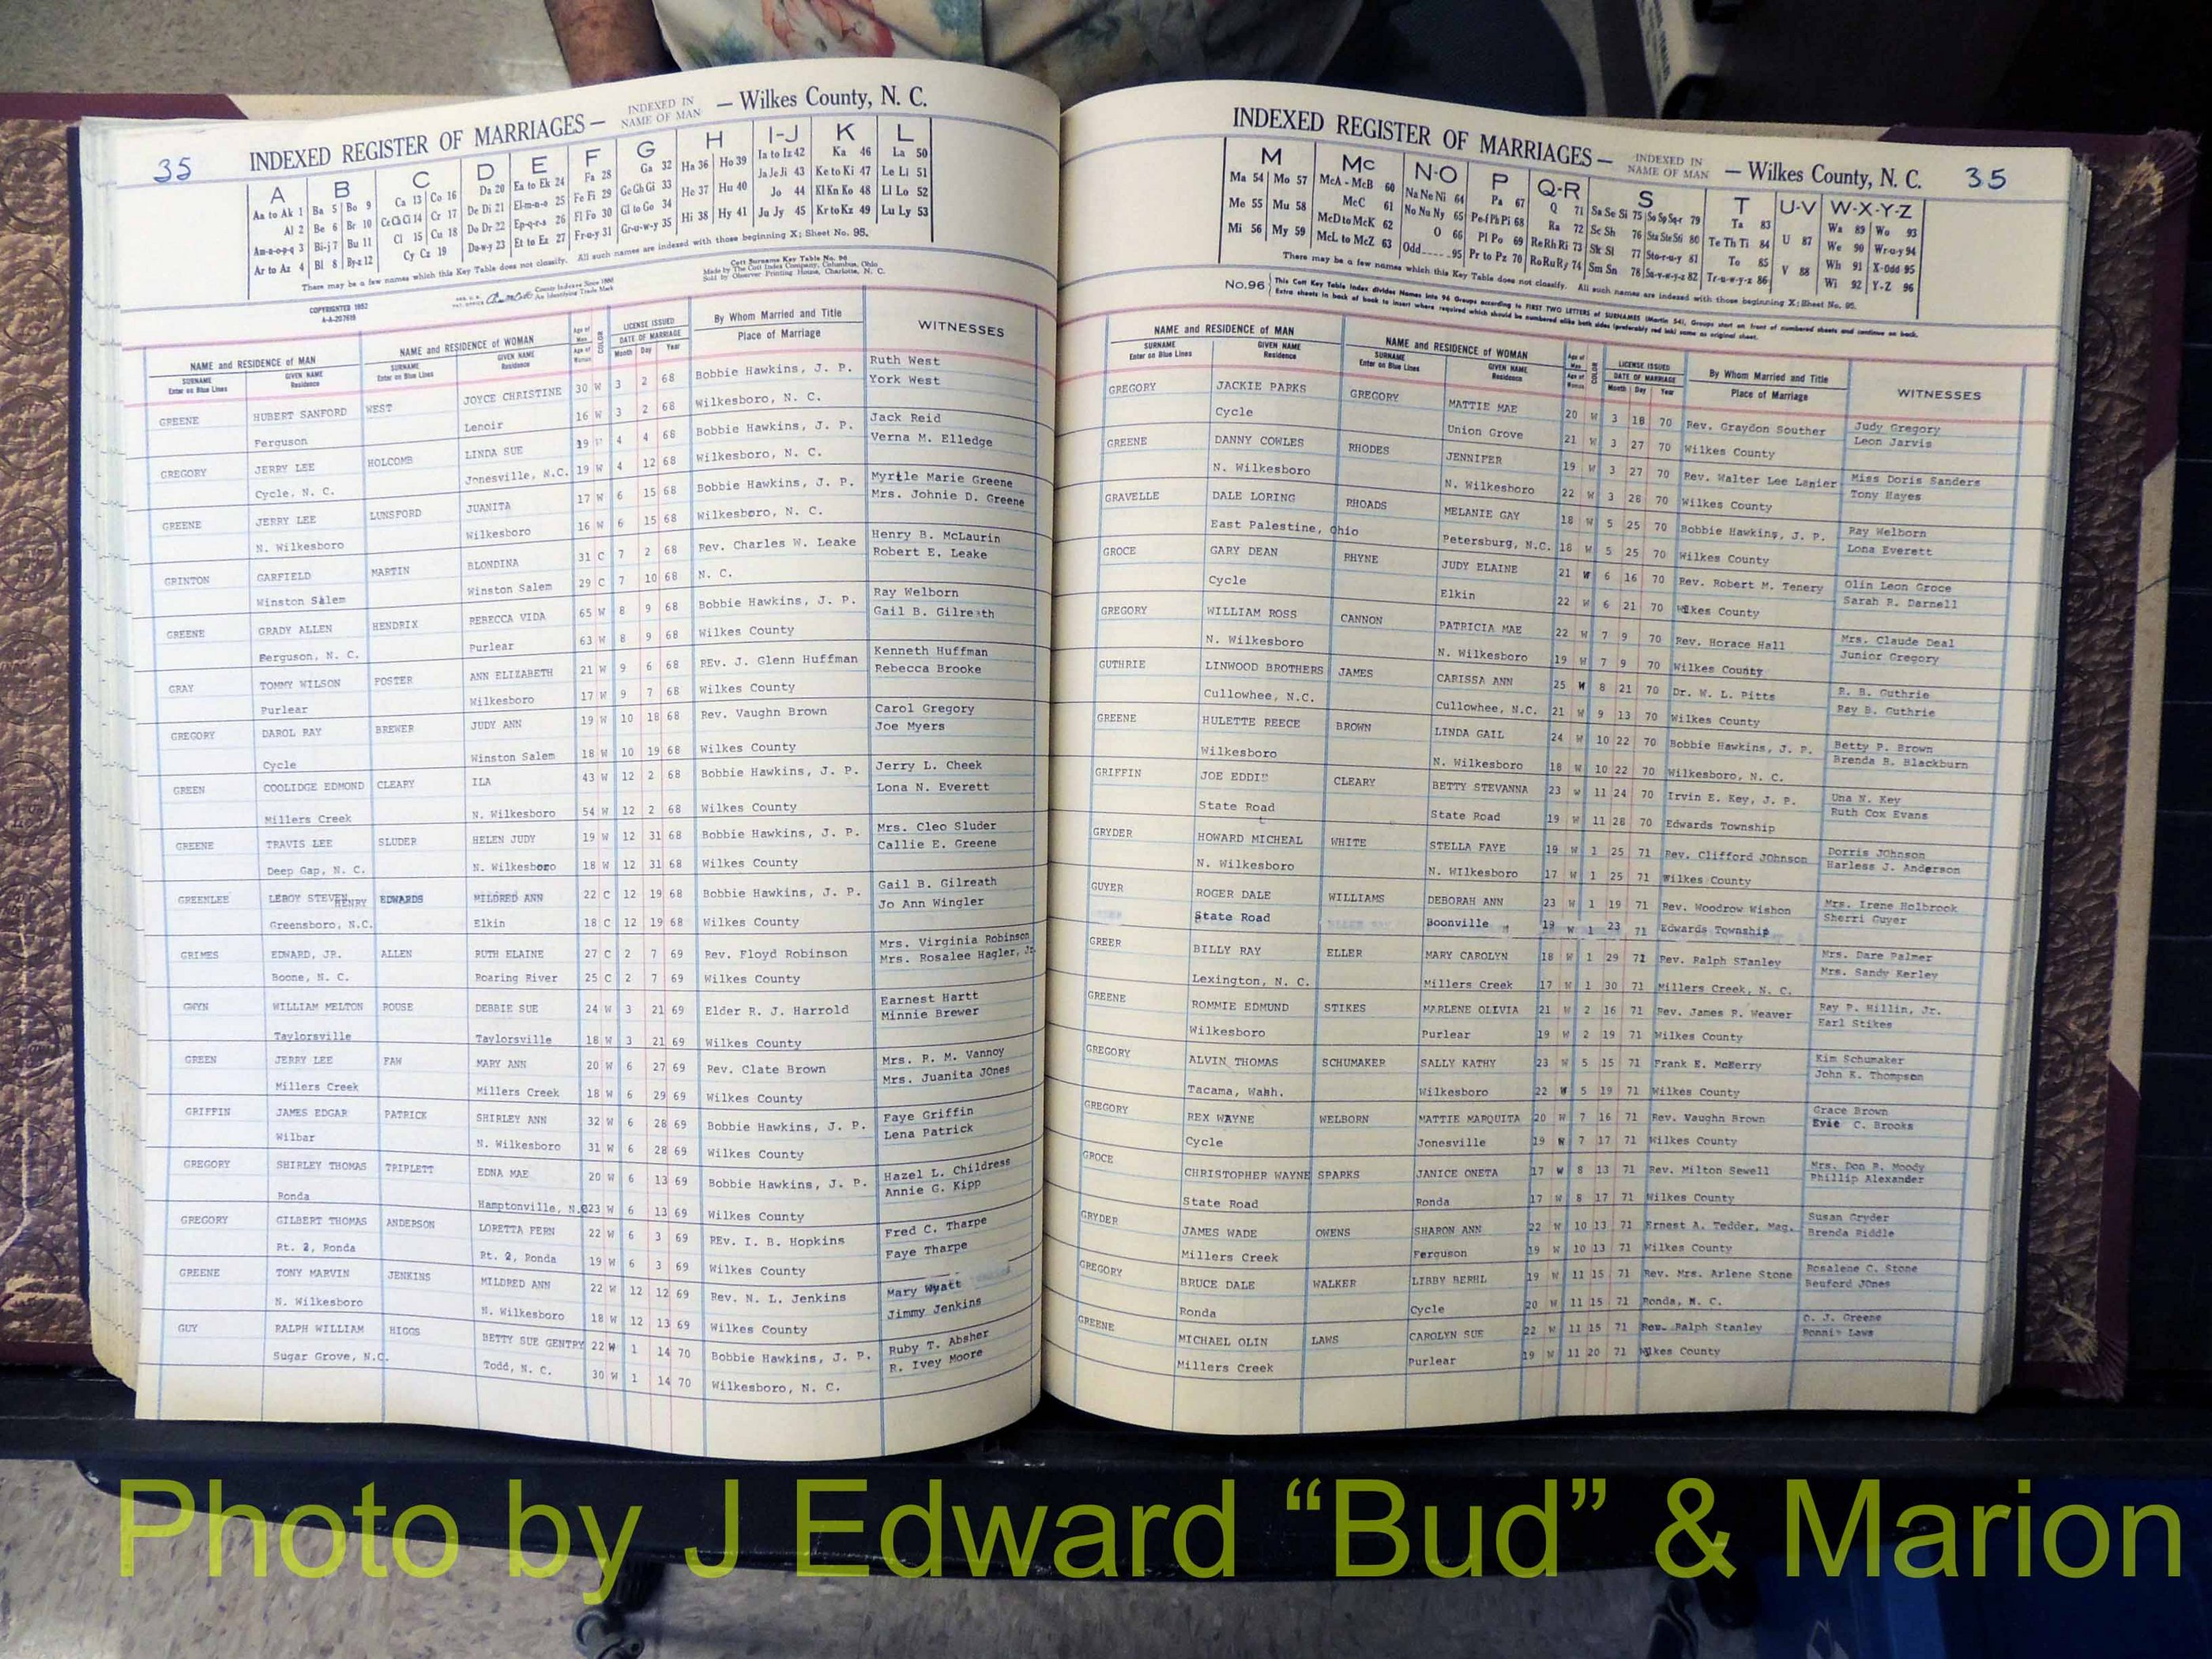 35 INDEXED REGISTER OF MARRIAGES — INDEXED IN NAME OF MAN — Wilkes County, N. C.
A B C D E F G H I-J K L
Aa to Ak 1 Ba 5 Bo 9 Ca 13 Co 16 Da 20 Ea to Ek 24 Fa 28 Ga 32 Ha 36 Ho 39 Ia to Iz 42 Ka 46 La 50
Al 2 Be 6 Br 10 Ce Ch Ci 14 Cr 17 De Di 21 El-m-n-o 25 Fe Fi 29 Ge Gh Gi 33 He 37 Hu 40 Ja Je Ji 43 Ke to Ki 47 Le Li 51
Am-n-o-p-q 3 Bi-j 7 Bu 11 Cl 15 Cu 18 Do Dr 22 Ep-q-r-s 26 Fl Fo 30 Gl to Go 34 Hi 38 Hy 41 Jo 44 Kl Kn Ko 48 Ll Lo 52
Ar to Az 4 Bl 8 By-z 12 Cy Cz 19 Du-w-y 23 Et to Ez 27 Fr-u-y 31 Gr-u-w-y 35 Ju Jy 45 Kr to Kz 49 Lu Ly 53
There may be a few names which this Key Table does not classify. All such names are indexed with those beginning X; Sheet No. 95.
COPYRIGHTED 1952
A-A-207619
County Indexes Since 1888
An Identifying Trade Mark
Cott Surname Key Table No. 96
Made by The Cott Index Company, Columbus, Ohio
Sold by Observer Printing House, Charlotte, N. C.
NAME and RESIDENCE of MAN NAME and RESIDENCE of WOMAN Age of Man COLOR LICENSE ISSUED By Whom Married and Title WITNESSES
SURNAME GIVEN NAME SURNAME GIVEN NAME Age of Woman DATE OF MARRIAGE Place of Marriage
Enter on Blue Lines Residence Enter on Blue Lines Residence Month Day Year
GREENE HUBERT SANFORD WEST JOYCE CHRISTINE 30 W 3 2 68 Bobbie Hawkins, J. P. Ruth West
Ferguson Lenoir 16 W 3 2 68 Wilkesboro, N. C. York West
GREGORY JERRY LEE HOLCOMB LINDA SUE 19 W 4 4 68 Bobbie Hawkins, J. P. Jack Reid
Cycle, N. C. Jonesville, N.C. 19 W 4 12 68 Wilkesboro, N. C. Verna M. Elledge
GREENE JERRY LEE LUNSFORD JUANITA 17 W 6 15 68 Bobbie Hawkins, J. P. Myrtle Marie Greene
N. Wilkesboro Wilkesboro 16 W 6 15 68 Wilkesboro, N. C. Mrs. Johnie D. Greene
GRINTON GARFIELD MARTIN BLONDINA 31 C 7 2 68 Rev. Charles W. Leake Henry B. McLaurin
Winston Salem Winston Salem 29 C 7 10 68 N. C. Robert E. Leake
GREENE GRADY ALLEN HENDRIX REBECCA VIDA 65 W 8 9 68 Bobbie Hawkins, J. P. Ray Welborn
Ferguson, N. C. Purlear 63 W 8 9 68 Wilkes County Gail B. Gilreath
GRAY TOMMY WILSON FOSTER ANN ELIZABETH 21 W 9 6 68 REv. J. Glenn Huffman Kenneth Huffman
Purlear Wilkesboro 17 W 9 7 68 Wilkes County Rebecca Brooke
GREGORY DAROL RAY BREWER JUDY ANN 19 W 10 18 68 Rev. Vaughn Brown Carol Gregory
Cycle Winston Salem 18 W 10 19 68 Wilkes County Joe Myers
GREEN COOLIDGE EDMOND CLEARY ILA 43 W 12 2 68 Bobbie Hawkins, J. P. Jerry L. Cheek
Millers Creek N. Wilkesboro 54 W 12 2 68 Wilkes County Lona N. Everett
GREENE TRAVIS LEE SLUDER HELEN JUDY 19 W 12 31 68 Bobbie Hawkins, J. P. Mrs. Cleo Sluder
Deep Gap, N. C. N. Wilkesboro 18 W 12 31 68 Wilkes County Callie E. Greene
GREENLEE LEROY STEVEN HENRY EDWARDS MILDRED ANN 22 C 12 19 68 Bobbie Hawkins, J. P. Gail B. Gilreath
Greensboro, N.C. Elkin 18 C 12 19 68 Wilkes County Jo Ann Wingler
GRIMES EDWARD, JR. ALLEN RUTH ELAINE 27 C 2 7 69 Rev. Floyd Robinson Mrs. Virginia Robinson
Boone, N. C. Roaring River 25 C 2 7 69 Wilkes County Mrs. Rosalee Hagler, Jr.
GWYN WILLIAM MELTON ROUSE DEBBIE SUE 24 W 3 21 69 Elder R. J. Harrold Earnest Hartt
Taylorsville Taylorsville 18 W 3 21 69 Wilkes County Minnie Brewer
GREEN JERRY LEE FAW MARY ANN 20 W 6 27 69 Rev. Clate Brown Mrs. R. M. Vannoy
Millers Creek Millers Creek 18 W 6 29 69 Wilkes County Mrs. Juanita JOnes
GRIFFIN JAMES EDGAR PATRICK SHIRLEY ANN 32 W 6 28 69 Bobbie Hawkins, J. P. Faye Griffin
Wilbar N. Wilkesboro 31 W 6 28 69 Wilkes County Lena Patrick
GREGORY SHIRLEY THOMAS TRIPLETT EDNA MAE 20 W 6 13 69 Bobbie Hawkins, J. P. Hazel L. Childress
Ronda Hamptonville, N.C 23 W 6 13 69 Wilkes County Annie G. Kipp
GREGORY GILBERT THOMAS ANDERSON LORETTA FERN 22 W 6 3 69 REv. I. B. Hopkins Fred C. Tharpe
Rt. 2, Ronda Rt. 2, Ronda 19 W 6 3 69 Wilkes County Faye Tharpe
GREENE TONY MARVIN JENKINS MILDRED ANN 22 W 12 12 69 Rev. N. L. Jenkins Mary Wyatt
N. Wilkesboro N. Wilkesboro 18 W 12 13 69 Wilkes County Jimmy Jenkins
GUY RALPH WILLIAM HIGGS BETTY SUE GENTRY 22 W 1 14 70 Bobbie Hawkins, J. P. Ruby T. Absher
Sugar Grove, N.C. Todd, N. C. 30 W 1 14 70 Wilkesboro, N. C. R. Ivey Moore
INDEXED REGISTER OF MARRIAGES — INDEXED IN NAME OF MAN — Wilkes County, N. C. 35
M Mc N-O P Q-R S T U-V W-X-Y-Z
Ma 54 Mo 57 McA - McB 60 Na Ne Ni 64 Pa 67 Q 71 Sa Se Si 75 So Sp Sq-r 79 Ta 83 Wa 89 Wo 93
Me 55 Mu 58 McC 61 No Nu Ny 65 Pe-f Ph Pi 68 Ra 72 Sc Sh 76 Sta Ste Sti 80 Te Th Ti 84 U 87 We 90 Wr-u-y 94
Mi 56 My 59 McD to McK 62 O 66 Pl Po 69 Re Rh Ri 73 Sk Sl 77 Sto-r-u-y 81 To 85 V 88 Wh 91 X-Odd 95
McL to McZ 63 Odd 95 Pr to Pz 70 Ro Ru Ry 74 Sm Sn 78 Su-v-w-y-z 82 Tr-u-w-y-z 86 Wi 92 Y-Z 96
There may be a few names which this Key Table does not classify. All such names are indexed with those beginning X; Sheet No. 95.
No.96 This Cott Key Table Index divides Names into 96 Groups according to FIRST TWO LETTERS of SURNAMES (Martin 54), Groups start on front of numbered sheets and continue on back.
Extra sheets in back of book to insert where required which should be numbered alike both sides (preferably red ink) same as original sheet.
NAME and RESIDENCE of MAN NAME and RESIDENCE of WOMAN Age of Man COLOR LICENSE ISSUED By Whom Married and Title WITNESSES
SURNAME GIVEN NAME SURNAME GIVEN NAME Age of Woman DATE OF MARRIAGE Place of Marriage
Enter on Blue Lines Residence Enter on Blue Lines Residence Month Day Year
GREGORY JACKIE PARKS GREGORY MATTIE MAE 20 W 3 18 70 Rev. Graydon Souther Judy Gregory
Cycle Union Grove 21 W 3 27 70 Wilkes County Leon Jarvis
GREENE DANNY COWLES RHODES JENNIFER 19 W 3 27 70 Rev. Walter Lee Lanier Miss Doris Sanders
N. Wilkesboro N. Wilkesboro 22 W 3 28 70 Wilkes County Tony Hayes
GRAVELLE DALE LORING RHOADS MELANIE GAY 18 W 5 25 70 Bobbie Hawkins, J. P. Ray Welborn
East Palestine, Ohio Petersburg, N.C. 18 W 5 25 70 Wilkes County Lona Everett
GROCE GARY DEAN PHYNE JUDY ELAINE 21 W 6 16 70 Rev. Robert M. Tenery Olin Leon Groce
Cycle Elkin 22 W 6 21 70 Wilkes County Sarah R. Darnell
GREGORY WILLIAM ROSS CANNON PATRICIA MAE 22 W 7 9 70 Rev. Horace Hall Mrs. Claude Deal
N. Wilkesboro N. Wilkesboro 19 W 7 9 70 Wilkes County Junior Gregory
GUTHRIE LINWOOD BROTHERS JAMES CARISSA ANN 25 W 8 21 70 Dr. W. L. Pitts R. B. Guthrie
Cullowhee, N.C. Cullowhee, N.C. 21 W 9 13 70 Wilkes County Ray B. Guthrie
GREENE HULETTE REECE BROWN LINDA GAIL 24 W 10 22 70 Bobbie Hawkins, J. P. Betty P. Brown
Wilkesboro N. Wilkesboro 18 W 10 22 70 Wilkesboro, N. C. Brenda B. Blackburn
GRIFFIN JOE EDDIE CLEARY BETTY STEVANNA 23 W 11 24 70 Irvin E. Key, J. P. Una N. Key
State Road State Road 19 W 11 28 70 Edwards Township Ruth Cox Evans
GRYDER HOWARD MICHEAL WHITE STELLA FAYE 19 W 1 25 71 Rev. Clifford JOhnson Dorris JOhnson
N. Wilkesboro N. WIlkesboro 17 W 1 25 71 Wilkes County Harless J. Anderson
GUYER ROGER DALE WILLIAMS DEBORAH ANN 23 W 1 19 71 Rev. Woodrow Wishon Mrs. Irene Holbrook
State Road Boonville 19 W 1 23 71 Edwards Township Sherri Guyer
GREER BILLY RAY ELLER MARY CAROLYN 18 W 1 29 71 Rev. Ralph STanley Mrs. Dare Palmer
Lexington, N. C. Millers Creek 17 W 1 30 71 Millers Creek, N. C. Mrs. Sandy Kerley
GREENE ROMMIE EDMUND STIKES MARLENE OLIVIA 21 W 2 16 71 Rev. James R. Weaver Ray P. Millin, Jr.
Wilkesboro Purlear 19 W 2 19 71 Wilkes County Earl Stikes
GREGORY ALVIN THOMAS SCHUMAKER SALLY KATHY 23 W 5 15 71 Frank E. McKerry Kim Schumaker
Tacama, Wahh. Wilkesboro 22 W 5 19 71 Wilkes County John K. Thompson
GREGORY REX WAYNE WELBORN MATTIE MARQUITA 20 W 7 16 71 Rev. Vaughn Brown Grace Brown
Cycle Jonesville 19 W 7 17 71 Wilkes County Evie C. Brooks
GROCE CHRISTOPHER WAYNE SPARKS JANICE ONETA 17 W 8 13 71 Rev. Milton Sewell Mrs. Don R. Moody
State Road Ronda 17 W 8 17 71 Wilkes County Phillip Alexander
GRYDER JAMES WADE OWENS SHARON ANN 22 W 10 13 71 Ernest A. Tedder, Mag. Susan Gryder
Millers Creek Ferguson 19 W 10 13 71 Wilkes County Brenda Riddle
GREGORY BRUCE DALE WALKER LIBBY BERHL 19 W 11 15 71 Rev. Mrs. Arlene Stone Rosalene C. Stone
Ronda Cycle 20 W 11 15 71 Ronda, N. C. Beuford JOnes
GREENE MICHAEL OLIN LAWS CAROLYN SUE 22 W 11 15 71 Rev. Ralph Stanley C. J. Greene
Millers Creek Purlear 19 W 11 20 71 Wilkes County Bonnie Laws
Photo by J Edward “Bud” & Marion